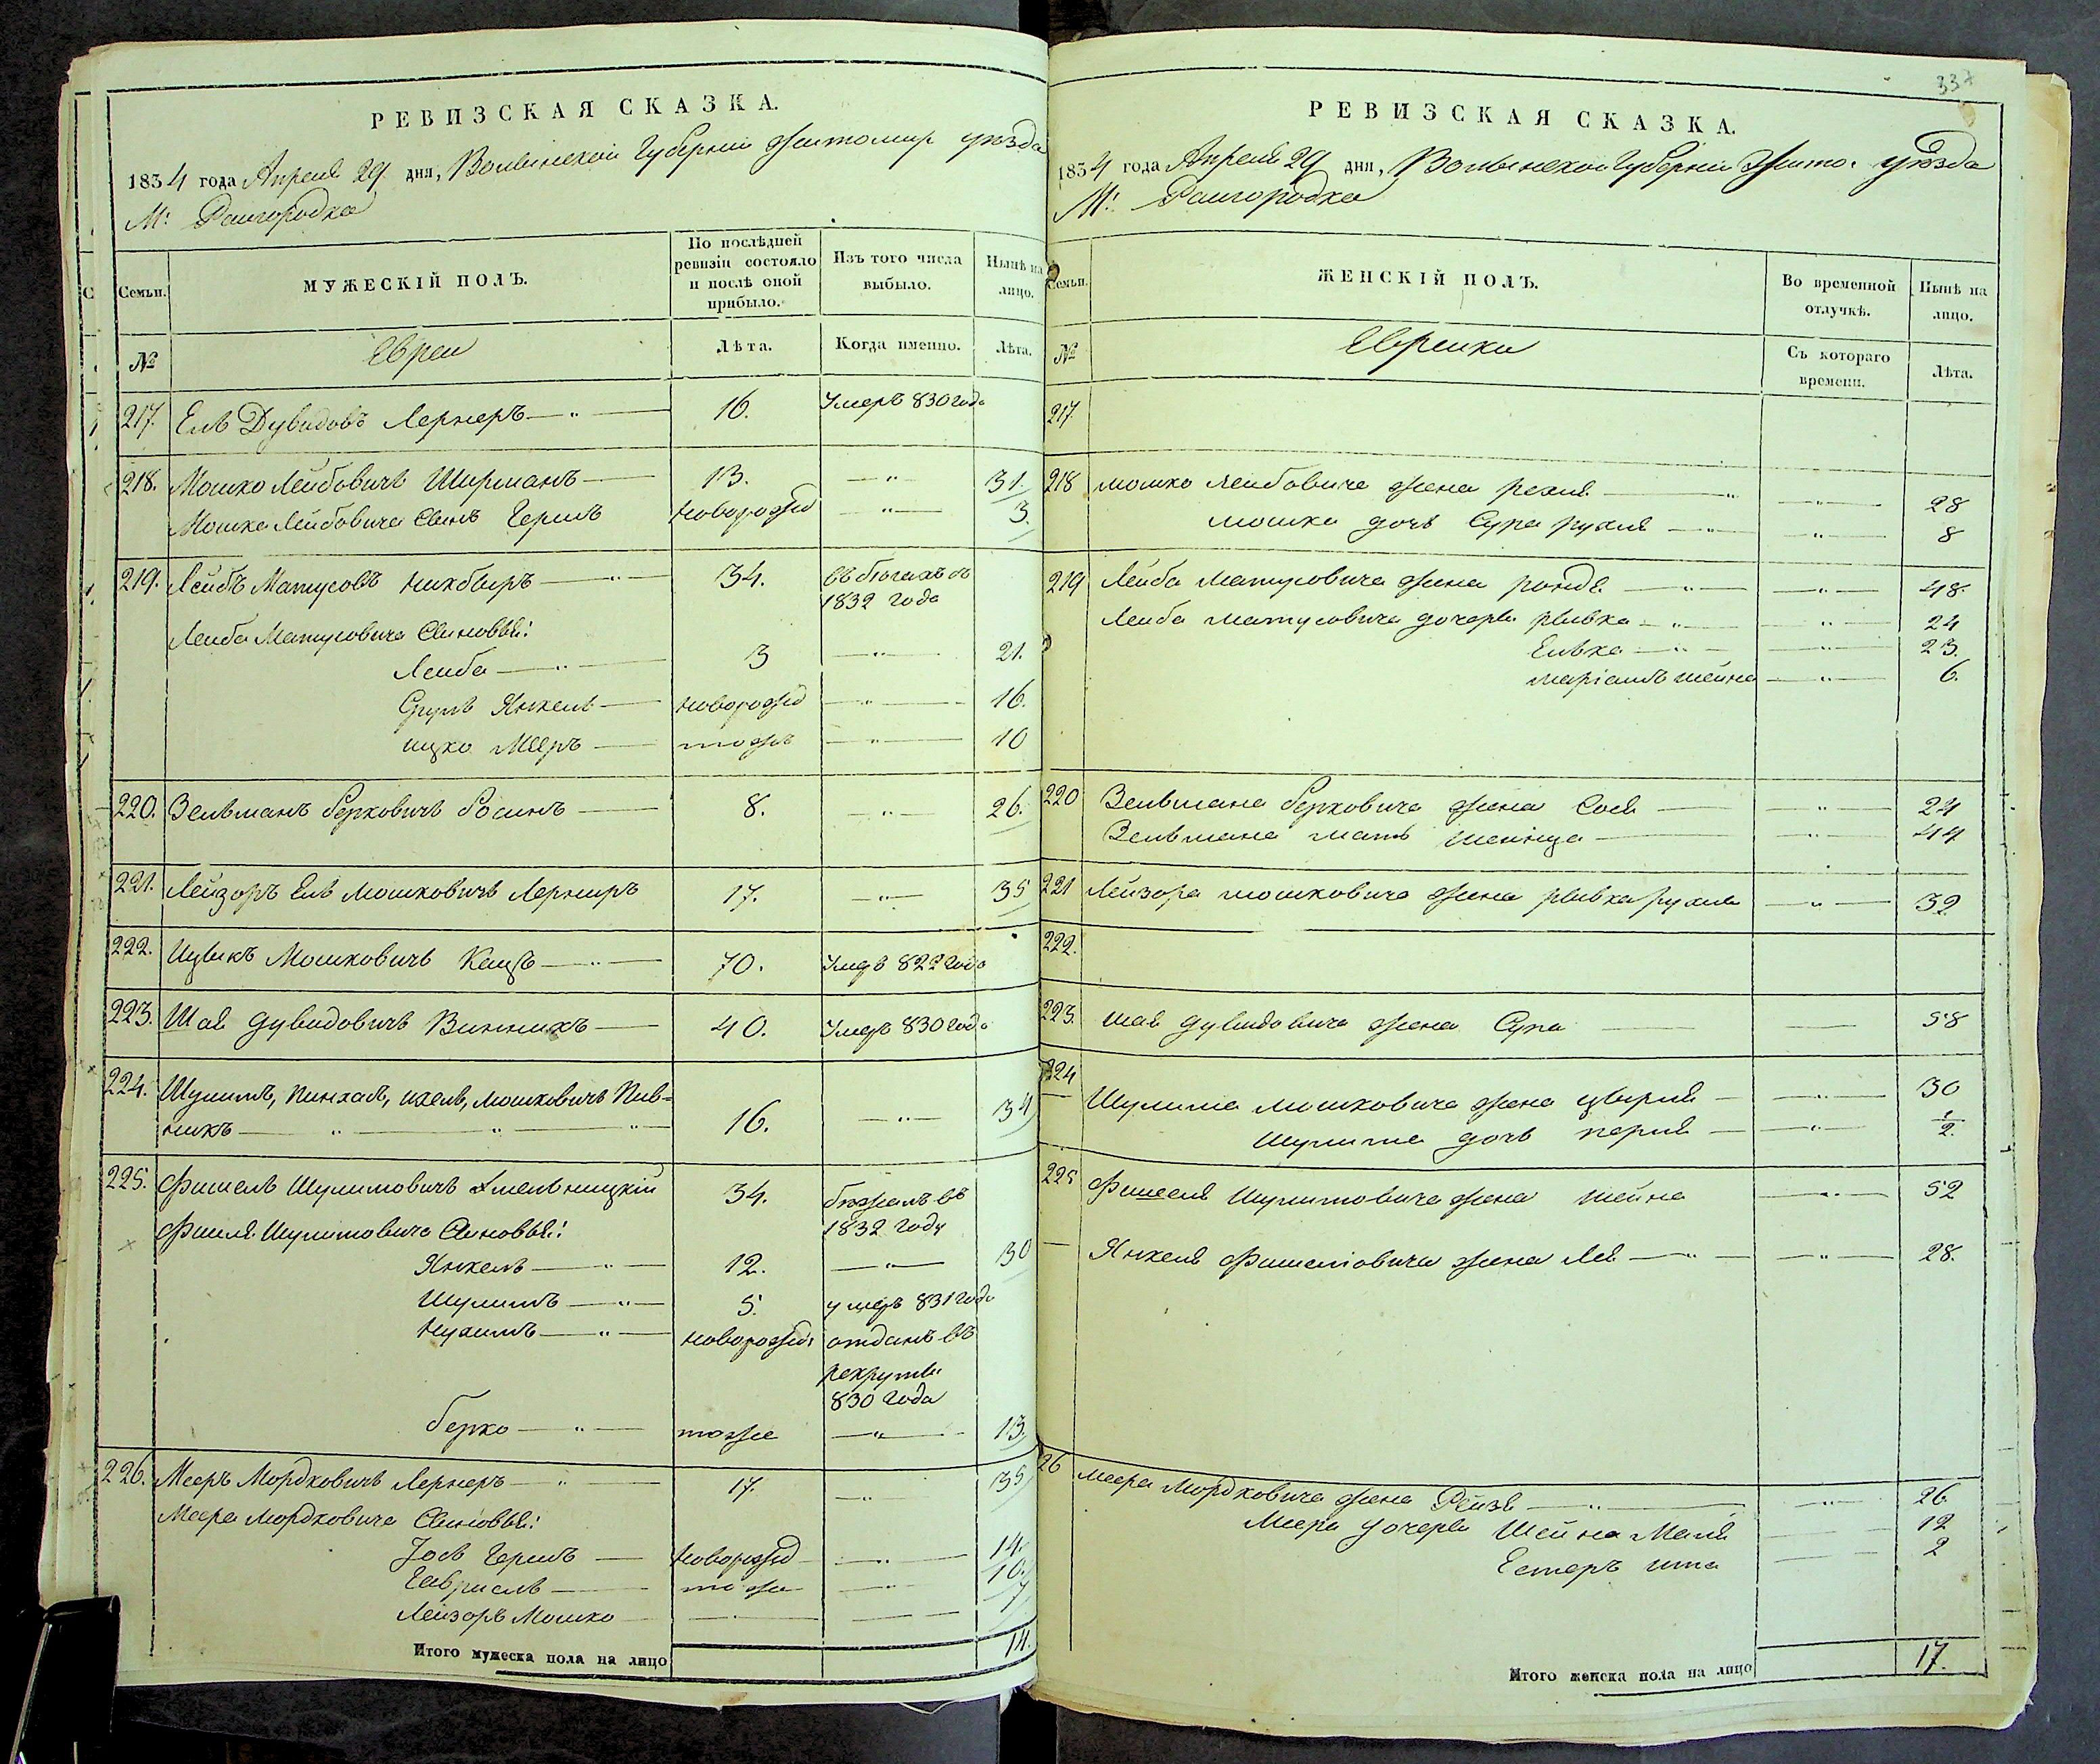 РЕВИЗСКАЯ СКАЗКА.
1834 года Апреля 29 дня, Волынской Губернии Житомир уезда
М: Раигородка
Семьи.
МУЖЕСКІЙ ПОЛЪ.
По послѣдней ревизіи состояло и послѣ оной прибыло.
Изъ того числа выбыло.
Нынѣ на лицо.
№
Евреи
Лѣта.
Когда именно.
Лѣта.
217. Ель Дувидовъ Лернеръ 16. Умеръ 830 года
218. Мошко Лейбовичъ Ширманъ 13. 31.
Мошка Лейбовича Сынъ Гершъ новорожд 3.
219. Лейбъ Матусовъ 34. въ бегахъ съ
1832 года
Лейба Матусовича Сыновья:
Лейба 3 21.
Сруль Янкель новорожд 16.
ицко Мееръ тожъ 10
220. Зельманъ Берковичъ Росинъ 8. 26.
221. Лейзоръ Ель Мошковичъ Лерниръ 17. 35
222. Ицыкъ Мошковичъ Кацъ 70. Умеръ 822 года
223. Шая Дувидовичъ Винникъ 40. Умеръ 830 года
224. Шулимъ, Пинхасъ, Ихель, Мошковичъ Пив=
никъ 16. 34
225. Фишель Шулимовичъ Хмельницкій 34. бежалъ въ
1832 году
Фишля Шулимовича Сыновья:
Янкель 12. 30
Шулимъ 5. умеръ 831 года
Нухимъ новорожд отданъ въ
рекруты
830 года
берко тоже 13.
226. Мееръ Мордковичъ Лернеръ 17. 35
Меера Мордковича Сыновья:
Іось Гершъ новорожд 14.
Гавриель тоже 10.
Лейзоръ Мошко 7
Итого мужеска пола на лицо 14.
337
РЕВИЗСКАЯ СКАЗКА.
1834 года Апреля 29 дня, Волынской Губернии Жито. уезда
М: Раигородка
Семьи.
ЖЕНСКІЙ ПОЛЪ.
Во временной отлучкѣ.
Нынѣ на лицо.
№
Еврейки
Съ котораго времени.
Лѣта.
217.
218 мошко лейбовича жена рехля 28
мошка дочь Сура рухля 8
219 Лейба матусовича жена рондя 48.
Лейба матусовича дочеры рывка 24
Елька 23.
маріамъ шейна 6.
220 Зельмана берковича жена Сося 24
Зельмана мать шейнца 44
221 Лейзора мошковича жена рывка рухля 32
222.
223. шая дувидовича жена Сура 58
224 Шулима мошковича жена цырля 30
Шулима дочь перля 1/2.
225 Фишеля Шулимовича жена шейна 52
Янкеля Фишелiовича жена Лея 28.
26 Меера Мордковича жена Рейзя 26.
Меера дочеры Шейна Маля 12
Естеръ ита 2
Итого женска пола на лицо 17.